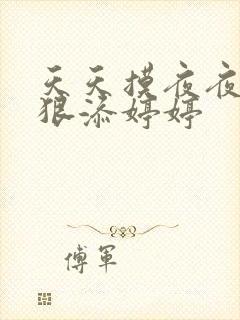 天天摸夜夜
狠添婷婷
傅军